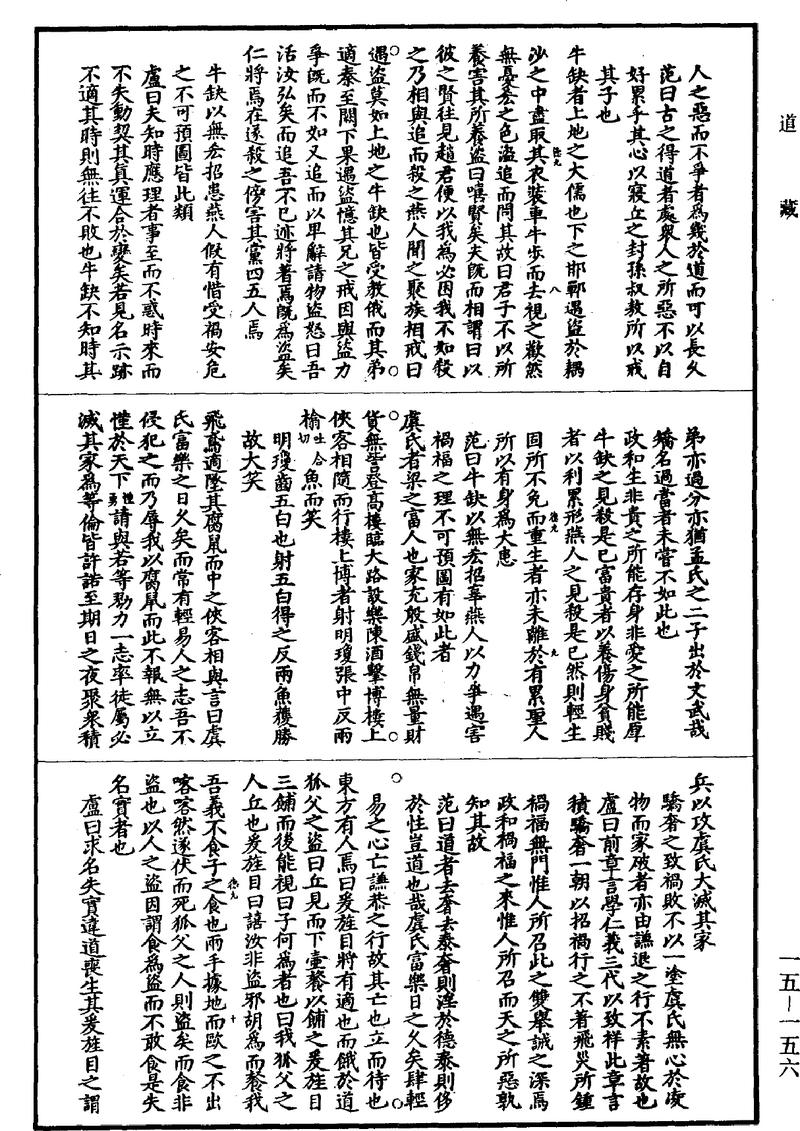 道藏
一五—一五六
人之惡而不爭者為幾於道而可以長久
范曰古之得道者處眾人之所惡不以自
好累乎其心以寢丘之封孫叔敖所以戒
其子也
牛缺者上地之大儒也下之邯鄲遇盜於耦
沙之中盡取其衣裝車牛步而去視之歡然
無憂𠫤之色盜追而問其故曰君子不以所
養害其所養盜曰嘻賢矣夫既而相謂曰以
彼之賢往見趙君便以我為必困我不如殺
之乃相與追而殺之燕人聞之聚族相戒曰
遇盜莫如上地之牛缺也皆受教俄而其弟
適秦至關下果遇盜憶其兄之戒因與盜力
爭既而不如又追而以卑辭請物盜怒曰吾
活汝弘矣而追吾不已迹將著焉既為盜矣
仁將焉在遂殺之傍害其黨四五人焉
牛缺以無𠫤招患燕人假有惜受禍安危
之不可預圖皆此類
盧曰夫知時應理者事至而不惑時來而
不失動契其真運合於變矣若見名示跡
不適其時則無往不敗也牛缺不知時其
弟亦過分亦猶孟氏之二子出於文武哉
矯名過當者未嘗不如此也
政和生非貴之所能存身非愛之所能厚
牛缺之見殺是已富貴者以養傷身貧賤
者以利累形燕人之見殺是已然則輕生
固所不免而重生者亦未離於有累聖人
所以有身為大患
范曰牛缺以無𠫤招辜燕人以力爭遇害
禍福之理不可預圖有如此者
虞氏者梁之富人也家充殷盛錢帛無量財
貨無訾登高樓臨大路設樂陳酒擊博樓上
俠客相隨而行樓上博者射明瓊張中反兩
㯓吐合切魚而笑
明瓊齒五白也射五白得之反兩魚獲勝
故大笑
飛鳶適墜其腐鼠而中之俠客相與言曰虞
氏富樂之日久矣而常有輕易人之志吾不
侵犯之而乃辱我以腐鼠而此不報無以立
慬於天下慬勇請與若等勠力一志率徒屬必
滅其家為等倫皆許諾至期日之夜聚眾積
兵以攻虞氏大滅其家
驕奢之致禍敗不以一塗虞氏無心於凌
物而家破者亦由謙退之行不素著故也
盧曰前章言學仁義三代以致祥此章言
積驕奢一朝以招禍行之不著飛災所鍾
禍福無門惟人所召此之雙舉誠之深焉
政和禍福之來惟人所召而天之所惡孰
知其故
范曰道者去奢去泰奢則淫於德泰則侈
於性豈道也哉虞氏富樂日之久矣肆輕
易之心亡謙恭之行故其亡也立而待也
東方有人焉曰爰旌目將有適也而餓於道
狐父之盜曰丘見而下壺餐以餔之爰旌目
三餔而後能視曰子何為者也曰我狐父之
人丘也爰旌目曰譆汝非盜邪胡為而餐我
吾義不食子之食也兩手據地而歐之不出
喀喀然遂伏而死狐父之人則盜矣而食非
盜也以人之盜因謂食為盜而不敢食是失
名實者也
盧曰求名失實違道喪生其爰旌目之謂